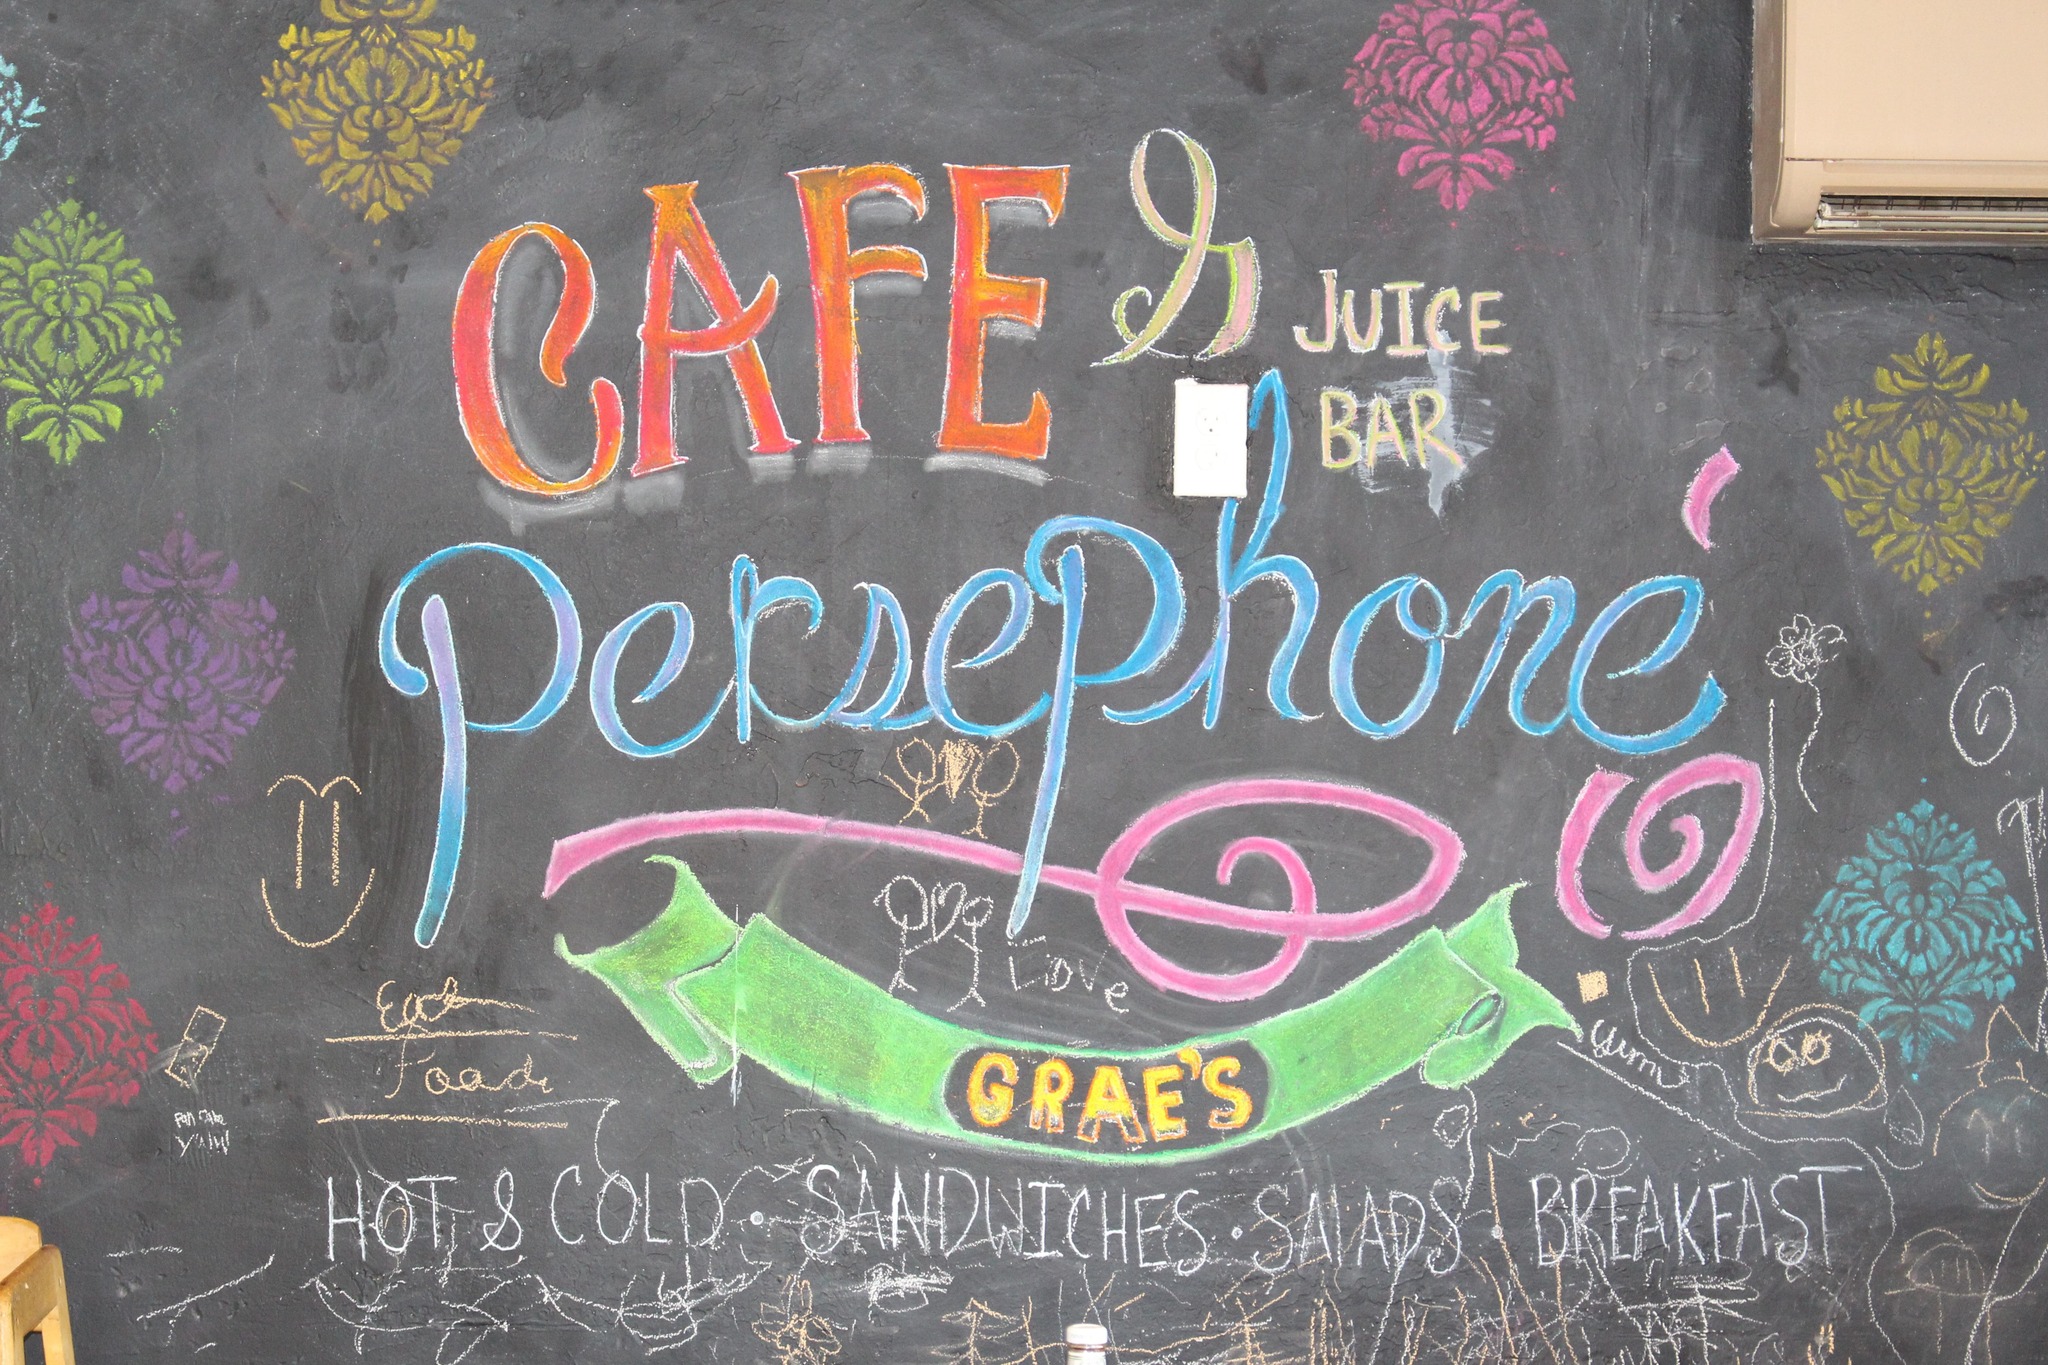 CAFE & JUICE
BAR
Persephoné
Love
Eat
Food
GRAE'S
yum
Y'ALL!
HOT & COLD · SANDWICHES · SALADS · BREAKFAST